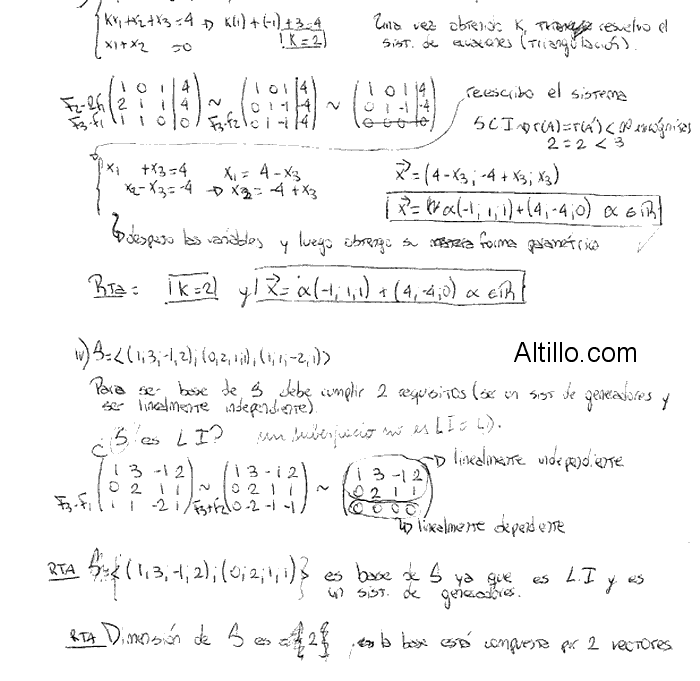 Kx₁+x₂+x₃=4 → K(1)+(-1)+3=4
x₁+x₂ =0 K=2
Una vez obtenido K, resuelvo el
sist. de ecuaciones (Triangulación).
F2-2F1 (1 0 1 | 4) ~ (1 0 1 | 4) ~ (1 0 1 | 4)
(2 1 1 | 4) (0 1 -1 | -4) (0 1 -1 | -4)
F3-F1 (1 1 0 | 0) F3-F2 (0 1 -1 | -4) (0 0 0 | 0)
reescribo el sistema
SCI → r(A)=r(A')< Nº incógnitas
2 = 2 < 3
x₁ +x₃=4 x₁ = 4-x₃
x₂-x₃=-4 → x₂ = -4+x₃
x⃗=(4-x₃; -4+x₃; x₃)
x⃗= α(-1; 1; 1)+(4;-4;0) α ∈ ℝ
despejo las variables y luego obtengo su forma paramétrica
Rta= K=2 y x⃗= α(-1; 1, 1) + (4,-4;0) α ∈ ℝ
iv) S=<(1,3;-1,2);(0,2,1;1),(1;1;-2,1)>
Altillo.com
Para ser base de S debe cumplir 2 requisitos (ser un sist de generadores y
ser linealmente independiente).
¿S es LI? un subespacio no es LI o LD.
(1 3 -1 2) ~ (1 3 -1 2) ~ (1 3 -1 2) → linealmente independiente
(0 2 1 1) (0 2 1 1) (0 2 1 1)
F3-F1 (1 1 -2 1) F3+F2 (0 -2 -1 -1) (0 0 0 0)
→ linealmente dependiente
RTA S={(1,3,-1,2);(0;2;1,1)} es base de S ya que es L.I y es
un sist. de generadores.
RTA Dimensión de S es = 2, la base está compuesta por 2 vectores